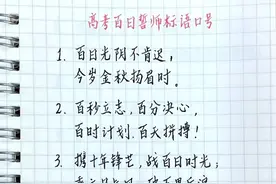 高考百日誓师标语口号
1. 百日光阴不肯迟，
今岁金秋扬眉时。
2. 百秒立志，百分决心，
百时计划，百天拼搏！
3. 携十年锋芒，战百日时光；